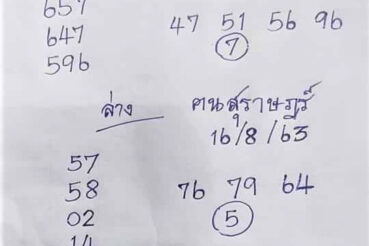 657
647 47 51 56 96
596 7
ล่าง คนสุราษฎร์
16/8/63
57
58 76 79 64
02 5
14